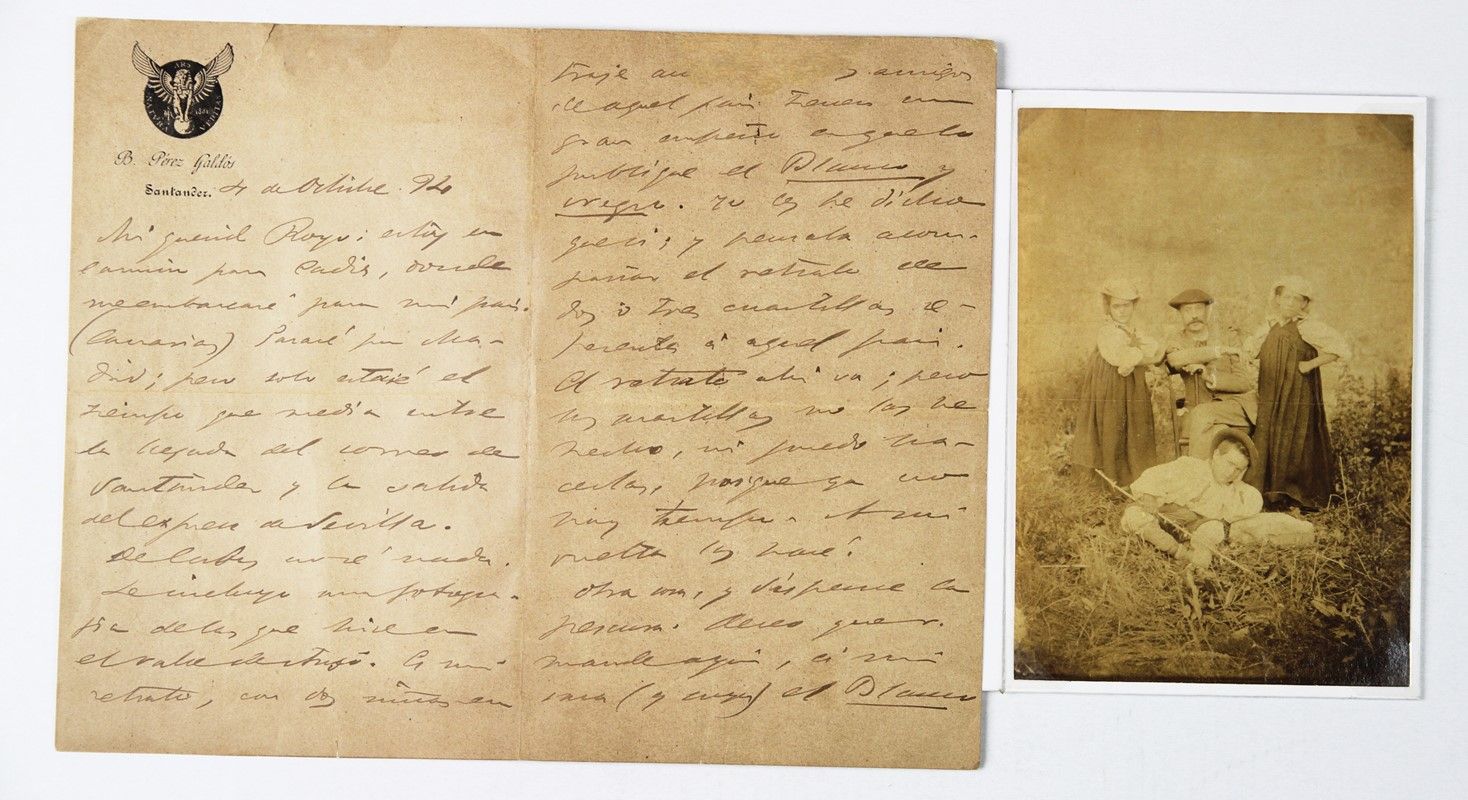 ARS
NATURA VERITAS
B. Pérez Galdós
Santander. 4 de Octubre. 94
Mi querido Royo: estoy en
camino para Cadiz, donde
me embarcaré para mi pais.
(Canarias) Pararé por Ma-
drid; pero solo estaré el
tiempo que media entre
la llegada del correo de
Santander y la salida
del expres de Sevilla.
se incluyo una fotogra-
fia de las que hice en
el valle de Ansó. Es mi
retrato, con dos niñas en
traje an amigos
de aquel pais tienen un
gran empeño en que lo
publique el Blanco y
Negro. Yo les he dicho
que si; y pensaba acom-
pañar el retrato de
dos ó tres cuartillas re-
ferentes á aquel pais.
El retrato ahi va; pero
las cuartillas no las he
hecho, ni puedo ha-
cerlas, porque ya no
hay tiempo. A mi
vuelta las haré.
Otra cosa, y dispense la
Deseo que se
mande aqui, á mi
casa el Blanco